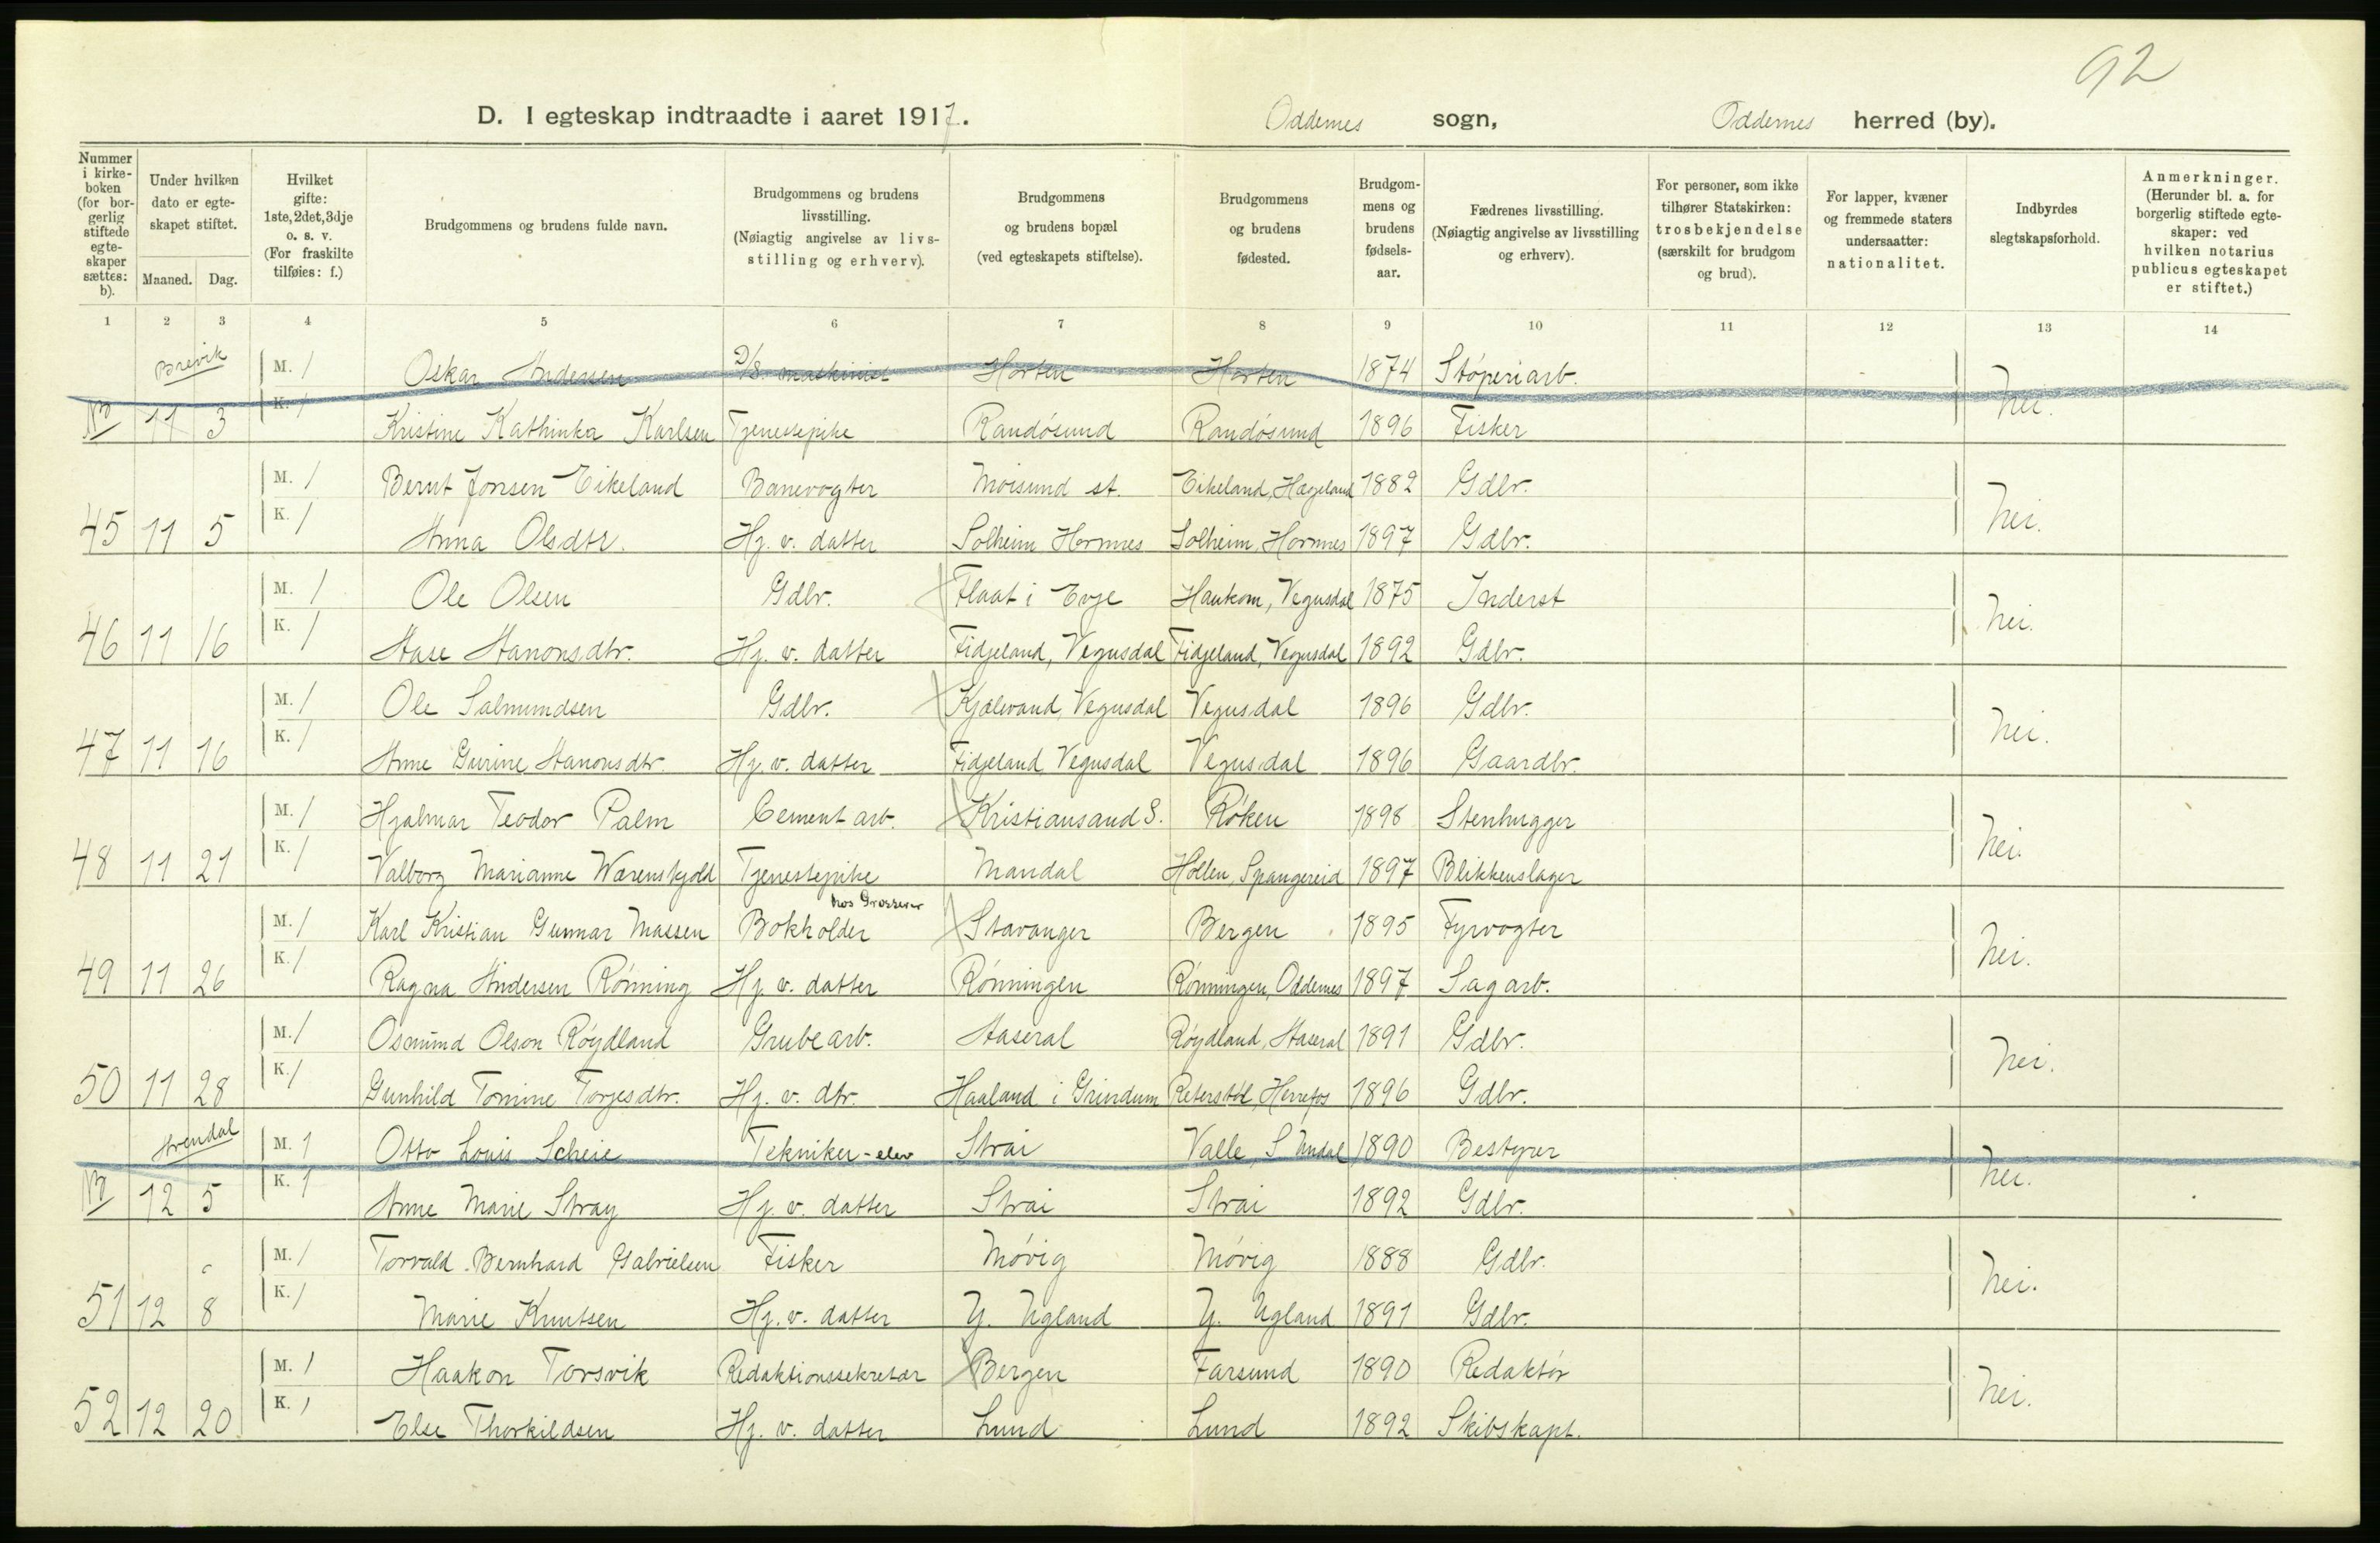 92
D. I egteskap indtraadte i aaret 1917. Oddernes sogn, Oddernes herred (by).
Nummer i kirke-boken (for bor-gerlig stiftede egte-skaper sættes: b).
Under hvilken dato er egte-skapet stiftet.
Maaned. Dag.
Hvilket gifte: 1ste, 2det, 3dje o. s. v. (For fraskilte tilføies: f.)
Brudgommens og brudens fulde navn.
Brudgommens og brudens livsstilling. (Nøiagtig angivelse av livs-stilling og erhverv).
Brudgommens og brudens bopæl (ved egteskapets stiftelse).
Brudgommens og brudens fødested.
Brudgom-mens og brudens fødsels-aar.
Fædrenes livsstilling. (Nøiagtig angivelse av livsstilling og erhverv).
For personer, som ikke tilhører Statskirken: trosbekjendelse (særskilt for brudgom og brud).
For lapper, kvæner og fremmede staters undersaatter: nationalitet.
Indbyrdes slegtskapsforhold.
Anmerkninger. (Herunder bl. a. for borgerlig stiftede egte-skaper: ved hvilken notarius publicus egteskapet er stiftet.)
1 2 3 4 5 6 7 8 9 10 11 12 13 14
Brevik M. 1 Oskar Andersen D/S. maskinist Horten Horten 1874 Støperiarb.
11 3 K. 1 Kristine Kathinka Karlsen Tjenestepike Randøsund Randøsund 1896 Fisker Nei.
M. 1 Bernt Jonsen Eikeland Banevogter Moisund st. Eikeland, Hægeland 1882 Gdbr.
45 11 5 K. 1 Anna Olsdtr. Hj. v. datter Solheim Hornnes Solheim, Hornnes 1897 Gdbr. Nei.
M. 1 Ole Olsen Gdbr. Flaat i Evje Haukom, Vegusdal 1875 Inderst
46 11 16 K. 1 Aase Aanonsdtr. Hj. v. datter Fidjeland, Vegusdal Fidjeland, Vegusdal 1892 Gdbr. Nei.
M. 1 Ole Salmundsen Gdbr. Kjælevand, Vegusdal Vegusdal 1896 Gdbr.
47 11 16 K. 1 Anne Gurine Aanonsdtr. Hj. v. datter Fidjeland Vegusdal Vegusdal 1896 Gaardbr. Nei.
M. 1 Hjalmar Teodor Palm Cementarb. Kristiansand S. Røken 1898 Stenhugger
48 11 21 K. 1 Valborg Marianne Wærenskjold Tjenestepike Mandal Høllen, Spangereid 1897 Blikkenslager Nei.
hos Grosserer
M. 1 Karl Kristian Gunnar Massen Bokholder Stavanger Bergen 1895 Fyrvogter
49 11 26 K. 1 Ragna Andersen Rønning Hj. v. datter Rønningen Rønningen, Oddernes 1897 Sagarb. Nei.
M. 1 Osmund Olson Røydland Grubearb. Aaseral Røydland, Aaseral 1891 Gdbr.
50 11 28 K. 1 Gunhild Tomine Torjesdtr. Hj. v. dtr. Haaland i Grindum Herefos 1896 Gdbr. Nei.
Arendal M. 1 Otto Louis Scheie Tekniker-elev Strai Valle, S Undal 1890 Bestyrer
12 5 K. 1 Anne Marie Stray Hj. v. datter Strai Strai 1892 Gdbr. Nei.
M. 1 Torvald Bernhard Gabrielsen Fisker Møvig Møvig 1888 Gdbr.
51 12 8 K. 1 Marie Knutsen Hj. v. datter Y. Ugland Y. Ugland 1891 Gdbr. Nei.
M. 1 Haakon Torsvik Redaktionssekretær Bergen Farsund 1890 Redaktør
52 12 20 K. 1 Else Thorkildsen Hj. v. datter Lund Lund 1892 Skibskapt. Nei.